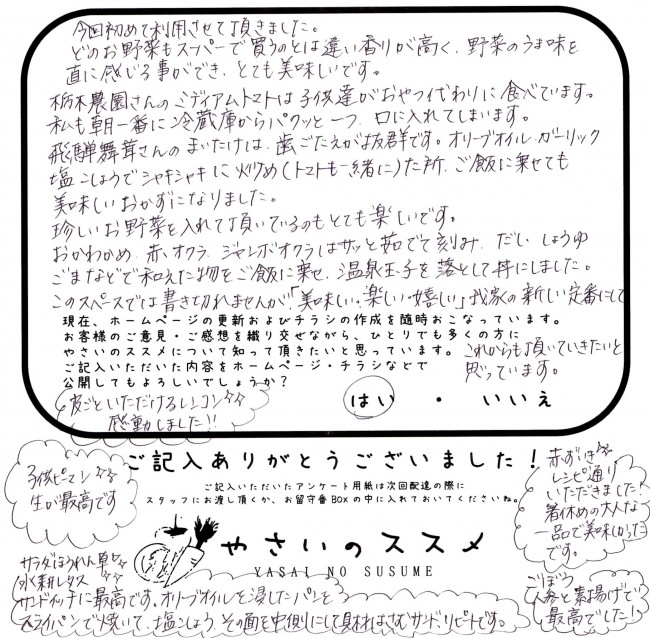 今回初めて利用させて頂きました。
どのお野菜もスーパーで買うのとは違い香りが高く、野菜のうま味を
直に感じる事ができ、とても美味しいです。
栃木農園さんのミディアムトマトは子供達がおやつ代わりに食べています。
私も朝一番に冷蔵庫からパクッと一つ、口に入れてしまいます。
飛騨舞茸さんのまいたけは、歯ごたえが抜群です。オリーブオイル、ガーリック
塩こしょうでシャキシャキに炒め(トマトも一緒に)た所、ご飯に乗せても
美味しいおかずになりました。
珍しいお野菜を入れて頂いているのもとても楽しいです。
おかわかめ、赤オクラ、ジャンボオクラはサッと茹でて刻み、だし、しょうゆ
ごまなどで和えた物をご飯に乗せ、温泉玉子を落として丼にしました。
このスペースでは書き切れませんが、「美味しい・楽しい・嬉しい」我家の新しい定番にして
これからも頂いていきたいと
思っています。
現在、ホームページの更新およびチラシの作成を随時おこなっています。
お客様のご意見・ご感想を織り交ぜながら、ひとりでも多くの方に
やさいのススメについて知って頂きたいと思っています。
ご記入いただいた内容をホームページ・チラシなどで
公開してもよろしいでしょうか?
はい ・ いいえ
皮ごといただけるレンコン
感動しました!!
ご記入ありがとうございました!
ご記入いただいたアンケート用紙は次回配達の際に
スタッフにお渡し頂くか、お留守番BOXの中に入れておいてくださいね。
子供ピーマン
生が最高です
赤ずいき
レシピ通り
いただきました!
箸休めの大人な
一品で美味しかった
です。
やさいのススメ
YASAI NO SUSUME
サラダほうれん草
水耕レタス
サンドイッチに最高です。オリーブオイルを浸したパンを
フライパンで焼いて、塩こしょう、その面を中側にして具材はさむサンド、リピトです。
ごぼう
人参と素揚げで
最高でした!